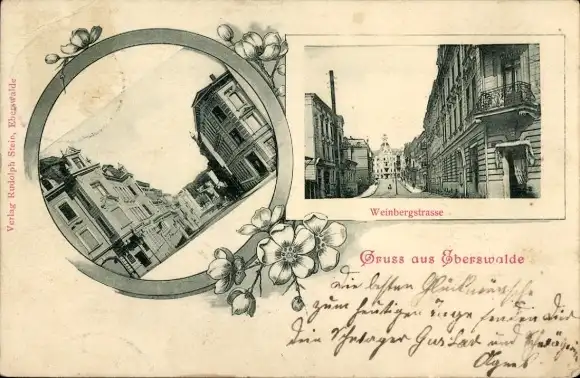 Verlag Rudolph Stein, Eberswalde
Weinbergstrasse
Gruss aus Eberswalde
Die besten Glückwünsche
zum heutigen Tage senden Dir
Dein Schwager Gustav und
Agnes